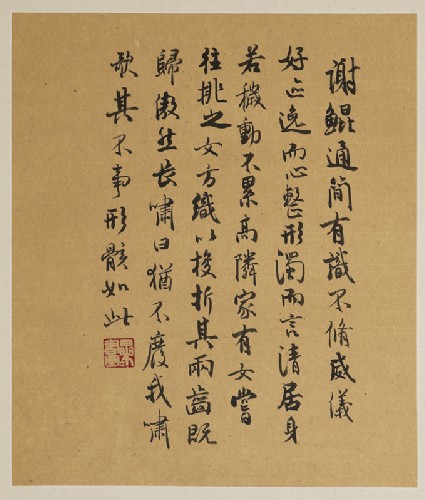 謝鯤通簡有識不脩威儀
好迹逸而心整形濁而言清居身
若穢動不累高隣家有女嘗
往挑之女方織以梭折其兩齒既
歸傲然長嘯曰猶不廢我嘯
歌其不事形骸如此